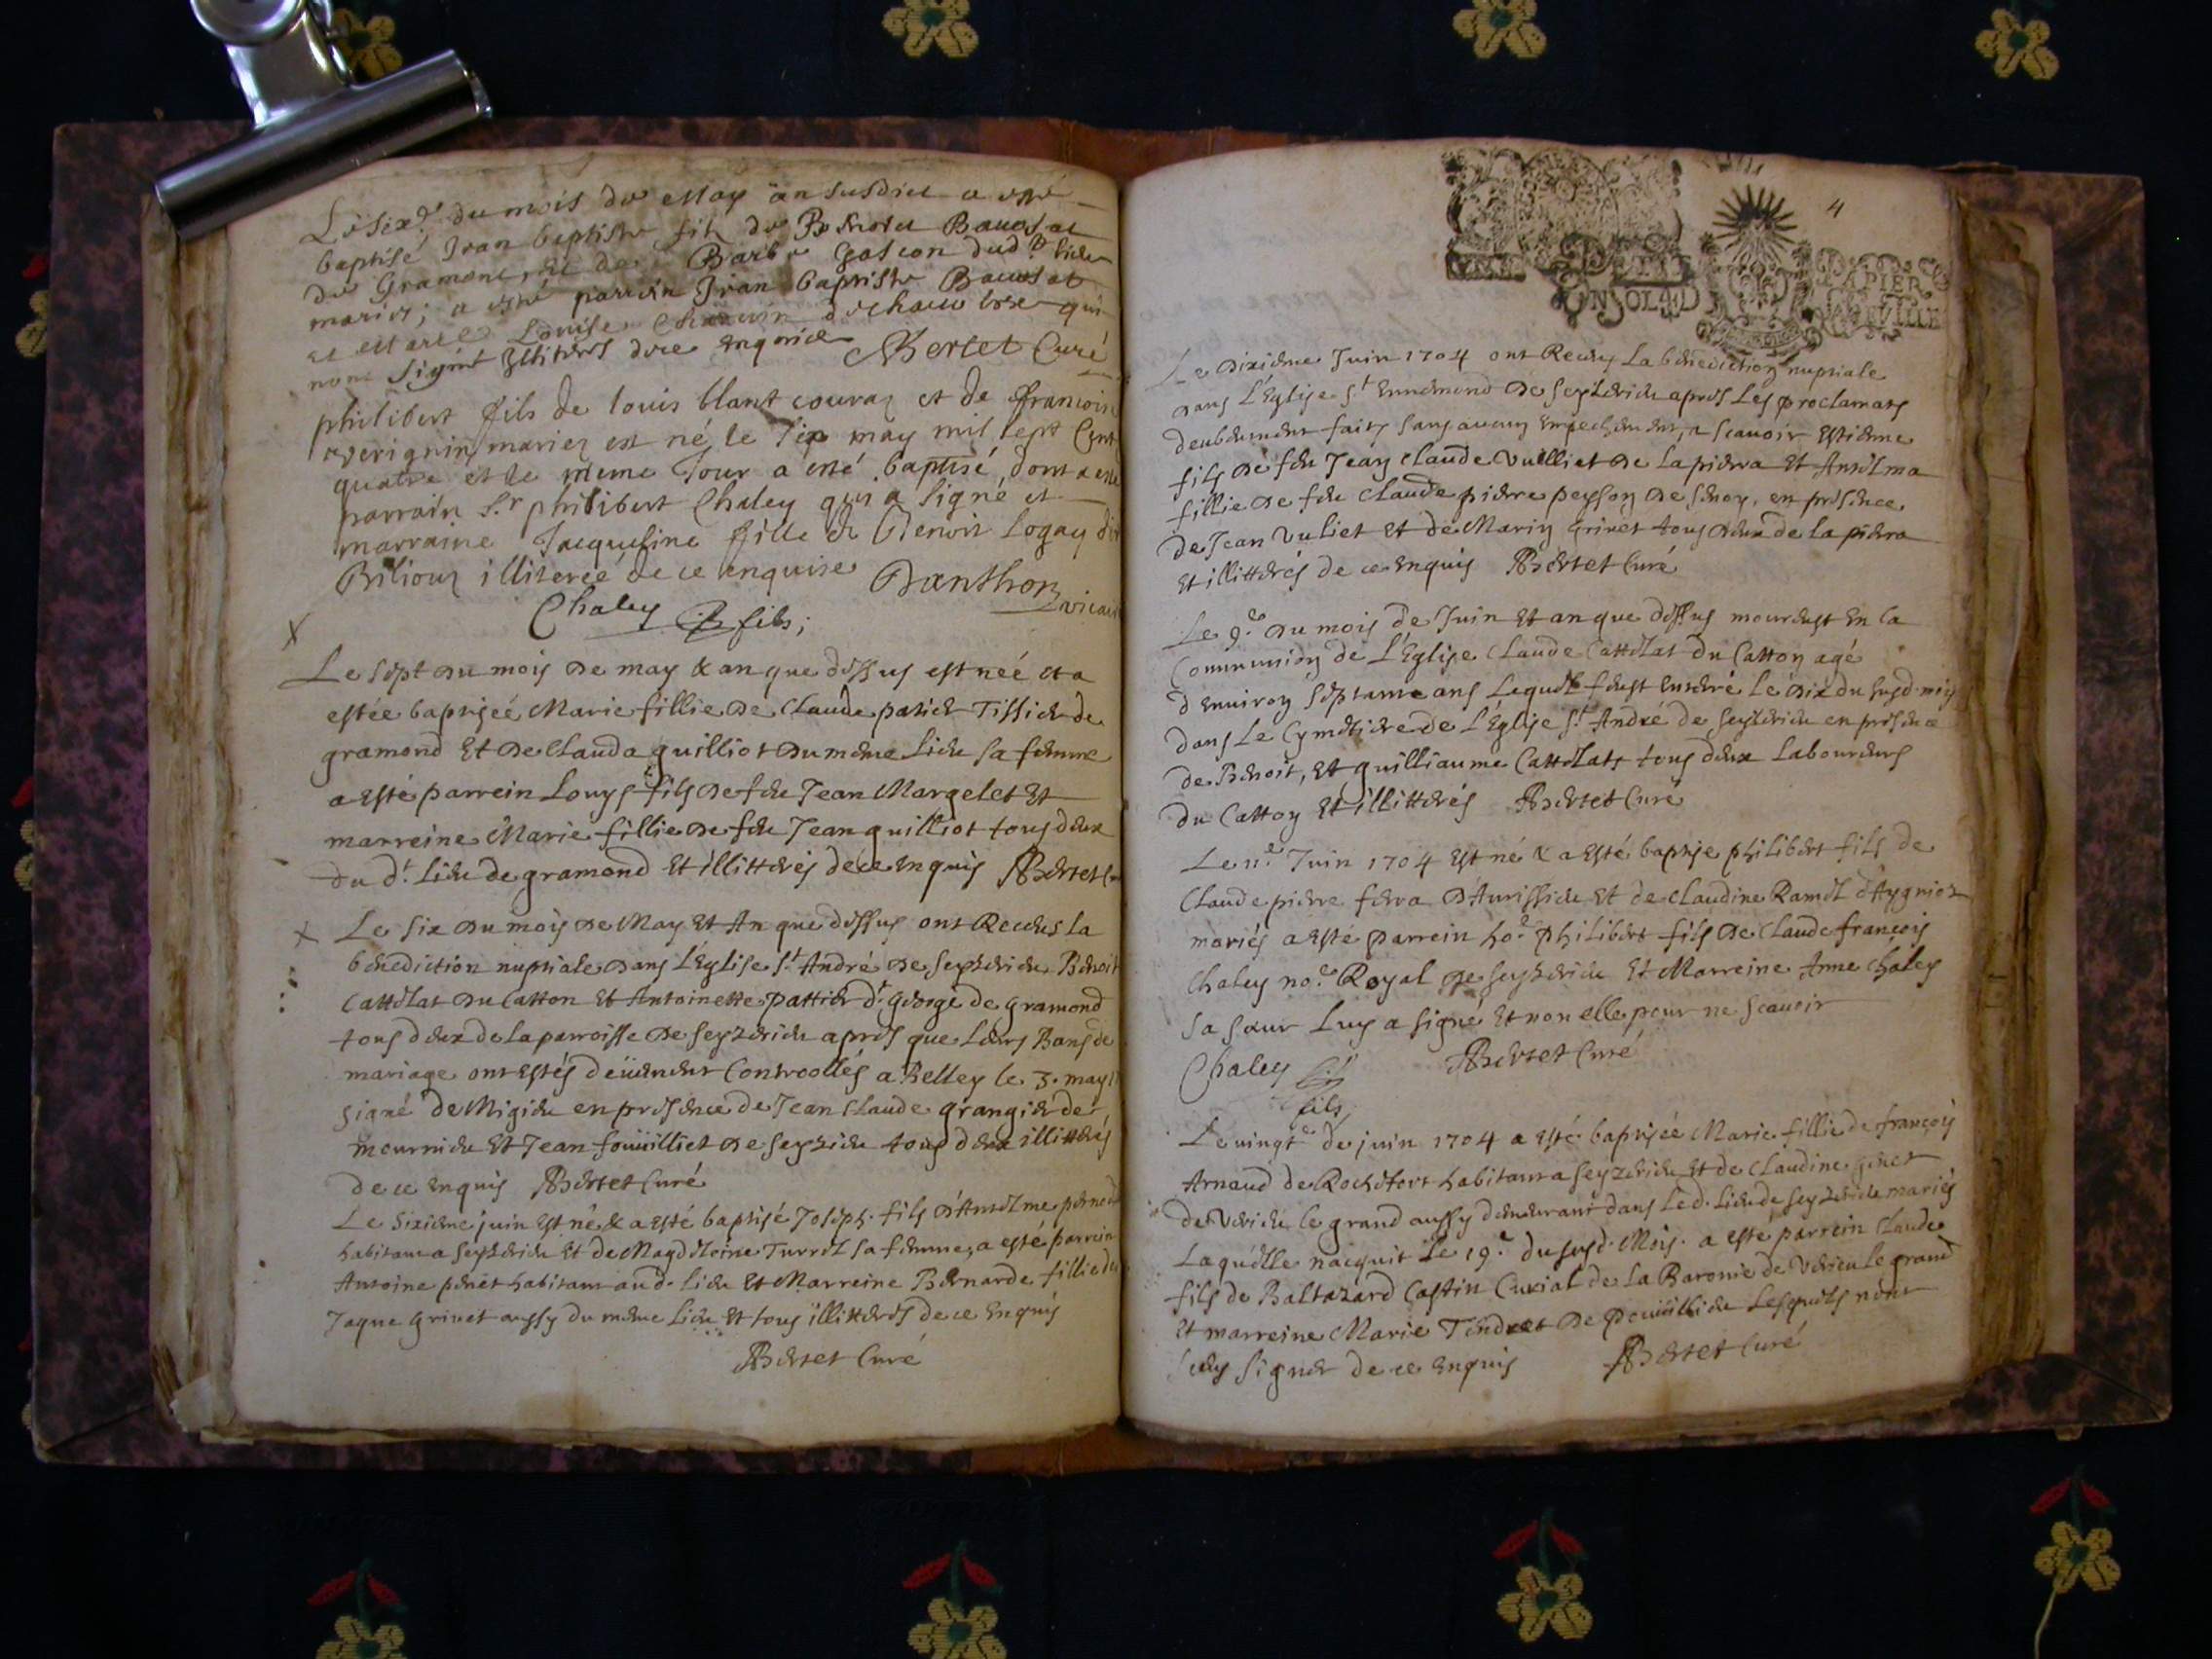 Le sixe. du mois de May an susdict a esté
baptisé Jean baptiste fils de Benoict Bavosat
de Gramont, et de Barbe Gascon dud. lieu
mariés; a esté parrein Jean baptiste Bavosat
et Marie Louise qui
nont signé illiteres de ce enquis Bertet Curé
philibert fils de louis blant couraz et de francoise
verignin mariez est né le six may mil sept Cent
quatre et le meme Jour a esté baptisé dont a esté
parrain S.r philibert Chaley qui a signé et
marraine Jacqueline fille de Benoit logay dit
Bilioux illiterée de ce enquise Danthon vicaire
Chaley fils;
Le sept du mois de may & an que dessus est neé et a
estée baptiseé Marie fillie de Claude patier Tissier de
gramond Et de Clauda guilliot du meme lieu sa femme
a esté parrein Louys fils de feu Jean Margelet Et
marreine Marie fillie de feu Jean guilliot tous deux
du d.t Lieu de gramond Et illitterés de ce enquis Bertet Cu
Le six du mois de May Et An que dessus ont Receus la
benediction nuptiale dans L'Eglise S.t André de seyzerieu Benoit
Cattelat du Catton Et Antoinette pattier d.t George de gramond
tous deux de la parroisse de seyzerieu apres que Leurs Bans de
mariage ont estés deüement Controollés a Belley le 3. may
signé de Migieu en presence de Jean Claude grangier de
meurnieu Et Jean fouilliet de seyzerieu tous deux illitterés
de ce enquis Bertet Curé
Le sixieme juin est né & a esté baptisé Joseph fils d'Antelme pernet
habitant a seyzerieu Et de Magdeleine Turrel sa femme, a esté parrein
Antoine penet habitant aud. lieu Et Marreine Bernarde fillie de
Jaque Grinet aussy du meme lieu Et tous illitterés de ce Enquis
Bertet Curé
4
PAPIER
Le dixieme Juin 1704 ont Receu La benediction nuptiale
dans L'Eglise S.t Ennemond de seyzerieu apres Les proclamats
deubement faits sans aucun Empechement, a scavoir Estienne
fils de feu Jean Claude Vuilliet de la pierra Et Antelma
fillie de feu Claude pierre peysson de senoy, en presence
de Jean Vuliet Et de Marin Grinet tous deux de la pierra
Et illitterés de ce Enquis Bertet Curé
Le 9.e du mois de Juin Et an que dessus mourust En la
Communion de L'Eglise Claude Cattelat du Catton agé
d'Environ septante ans Lequel feust Enterré le dix du susd. mois
dans Le Cymetiere de L'Eglise S.t André de seyzerieu en presence
de Benoit, Et guilliaume Cattelats tous deux Laboureurs
du Catton Et illitterés Bertet Curé
Le 11.e Juin 1704 Est né & a Esté baptisé philibert fils de
Claude pierre ferra d'Aurissieu Et de Claudine Ramel d'Aygnioz
mariés a Esté parrein ho.e philibert fils de Claude françois
Chaley no.e Royal de seyzerieu Et Marreine Anne Chaley
sa sœur Luy a signé Et non elle pour ne scavoir
Chaley fils Bertet Curé
Le vingt.e de juin 1704 a Esté baptiseé Marie fillie de françois
Arnaud de Rochefort habitant a seyzerieu Et de Claudine genet
de Verieu le grand aussy demeurant dans Le d. Lieu de seyzerieu mariés
Laquelle nacquit Le 19.e du susd. Mois. a esté parrein Claude
fils de Baltazard Castin Curial de La Baronie de Verieu le grand
Et marreine Marie Tendret de pouillieu Lesquels n'ont
sceu signer de ce enquis Bertet Curé